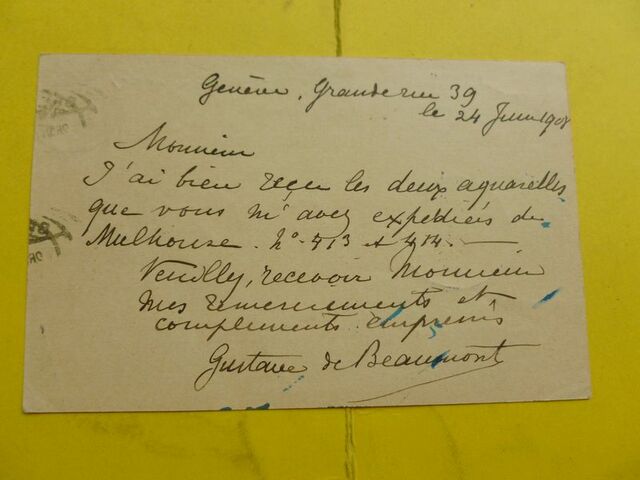 Genève, Grande rue 39
le 24 Juin 1901
Monsieur
J'ai bien reçu les deux aquarelles
que vous m'avez expédiées de
Mulhouse. No. 413 et 414. —
Veuillez, recevoir Monsieur
mes remerciements et
compliments empressés
Gustave de Beaumont